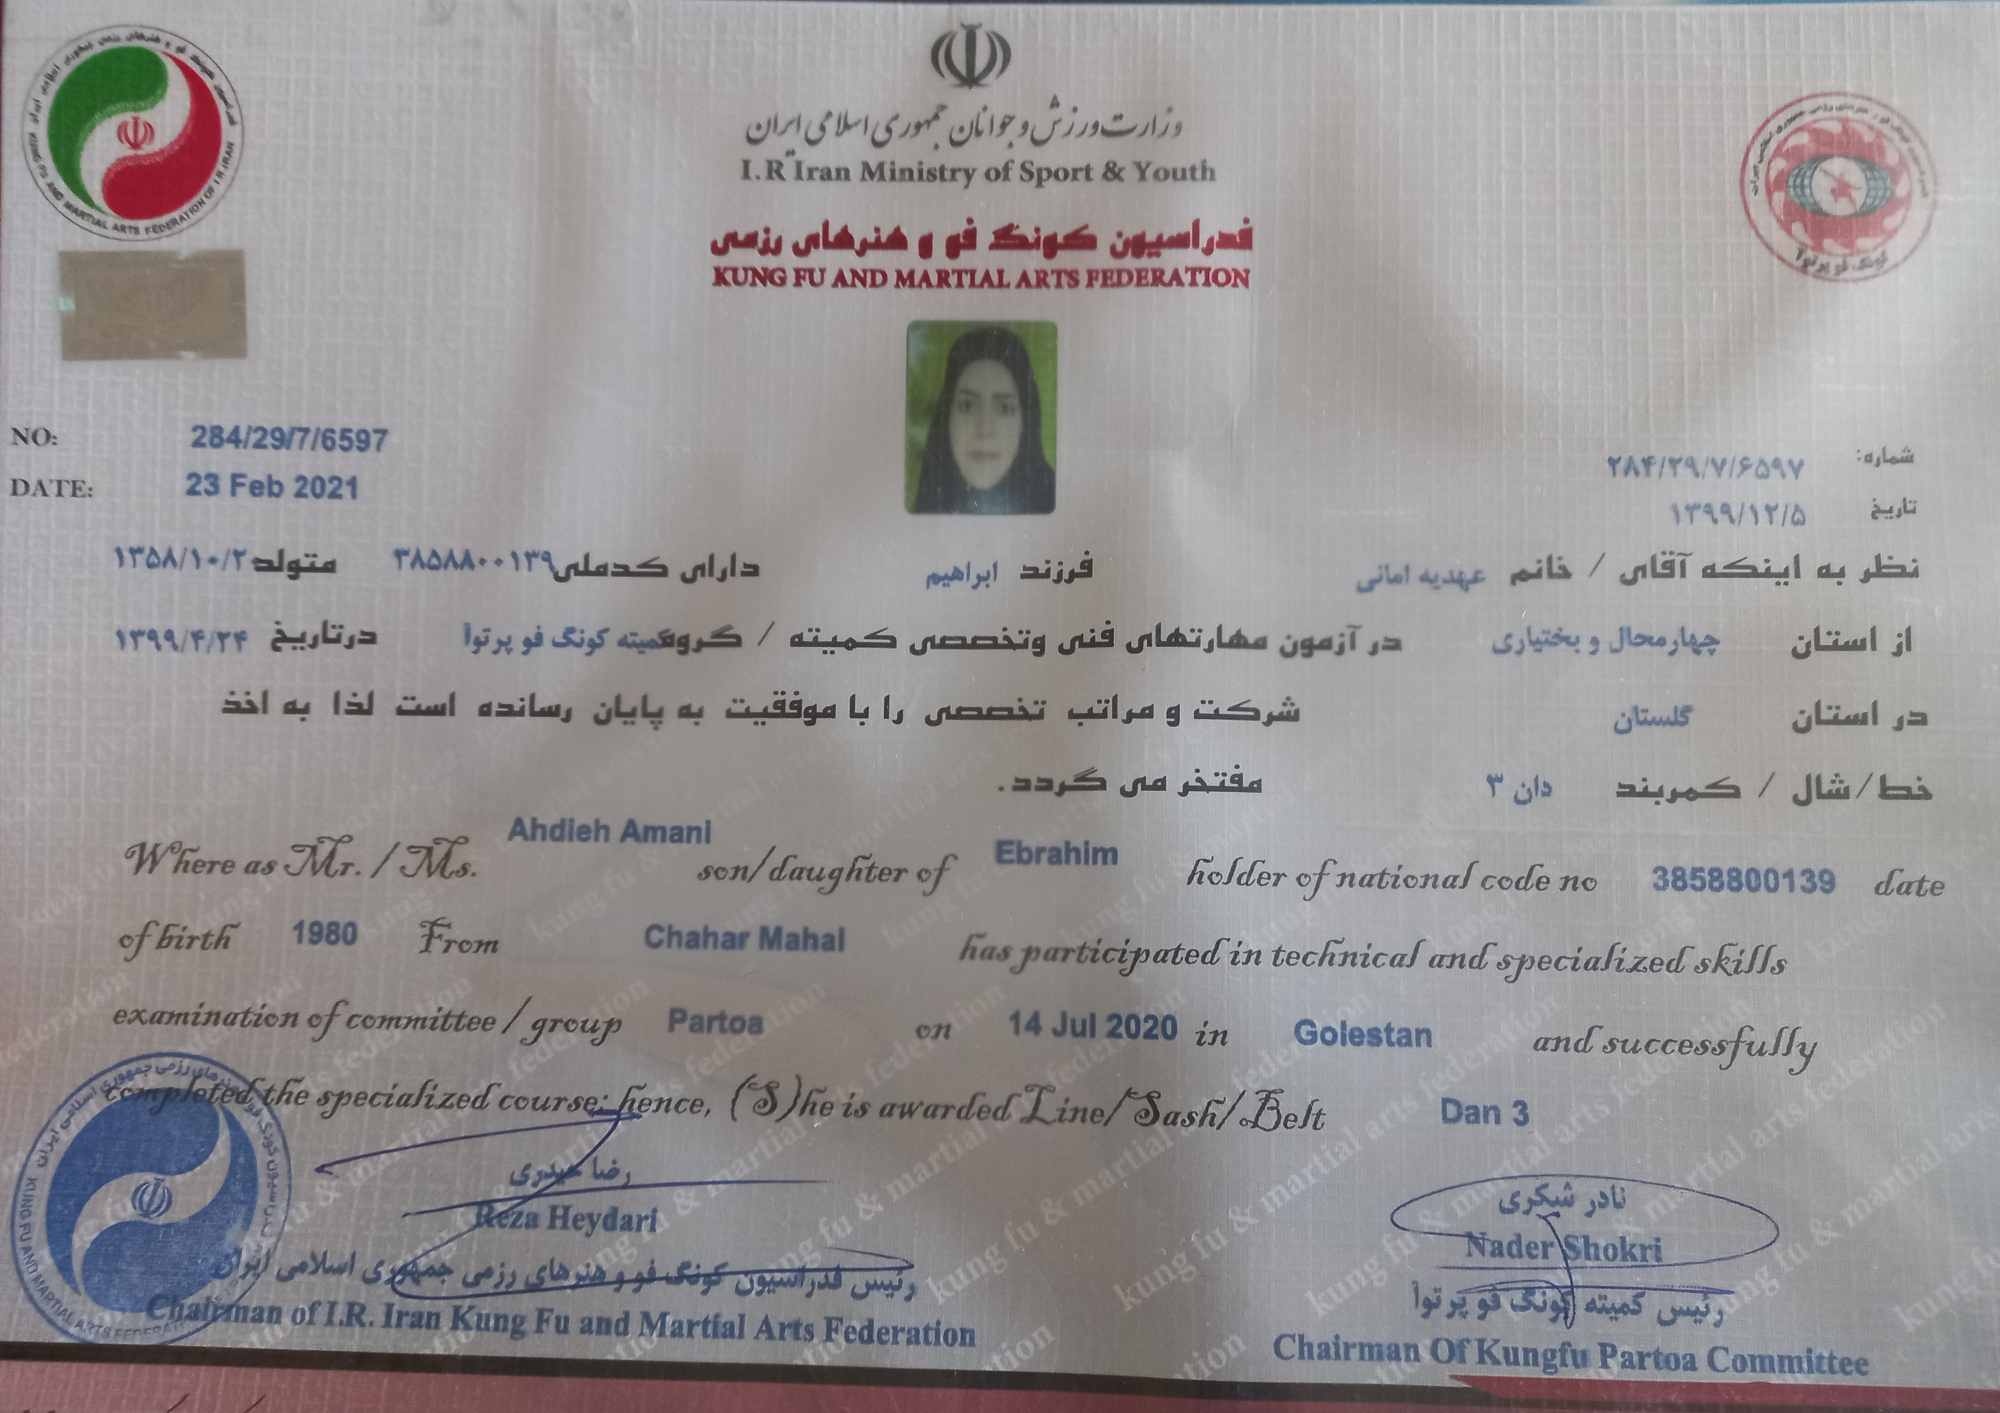 وزارت ورزش و جوانان جمهوری اسلامی ایران
I.R Iran Ministry of Sport & Youth
فدراسیون کونگ فو و هنرهای رزمی
KUNG FU AND MARTIAL ARTS FEDERATION
KUNG FU AND MARTIAL ARTS FEDERATION OF I.R IRAN
کونگ فو پرتوآ
NO: 284/29/7/6597
DATE: 23 Feb 2021
شماره: ۲۸۴/۲۹/۷/۶۵۹۷
تاریخ ۱۳۹۹/۱۲/۵
نظر به اینکه آقای / خانم عهدیه امانی فرزند ابراهیم دارای کدملی ۳۸۵۸۸۰۰۱۳۹ متولد ۱۳۵۸/۱۰/۲
از استان چهارمحال و بختیاری در آزمون مهارتهای فنی وتخصصی کمیته / گروه کمیته کونگ فو پرتوآ درتاریخ ۱۳۹۹/۴/۲۴
در استان گلستان شرکت و مراتب تخصصی را با موفقیت به پایان رسانده است لذا به اخذ
خط/شال / کمربند دان ۳ مفتخر می گردد.
Where as Mr. / Ms. Ahdieh Amani son/daughter of Ebrahim holder of national code no 3858800139 date
of birth 1980 From Chahar Mahal has participated in technical and specialized skills
examination of committee / group Partoa on 14 Jul 2020 in Golestan and successfully
completed the specialized course; hence, (S)he is awarded Line/Sash/Belt Dan 3
رضا حیدری
Reza Heydari
رئیس فدراسیون کونگ فو و هنرهای رزمی جمهوری اسلامی ایران
Chairman of I.R. Iran Kung Fu and Martial Arts Federation
نادر شکری
Nader Shokri
رئیس کمیته کونگ فو پرتوآ
Chairman Of Kungfu Partoa Committee
kung fu & martial arts federation